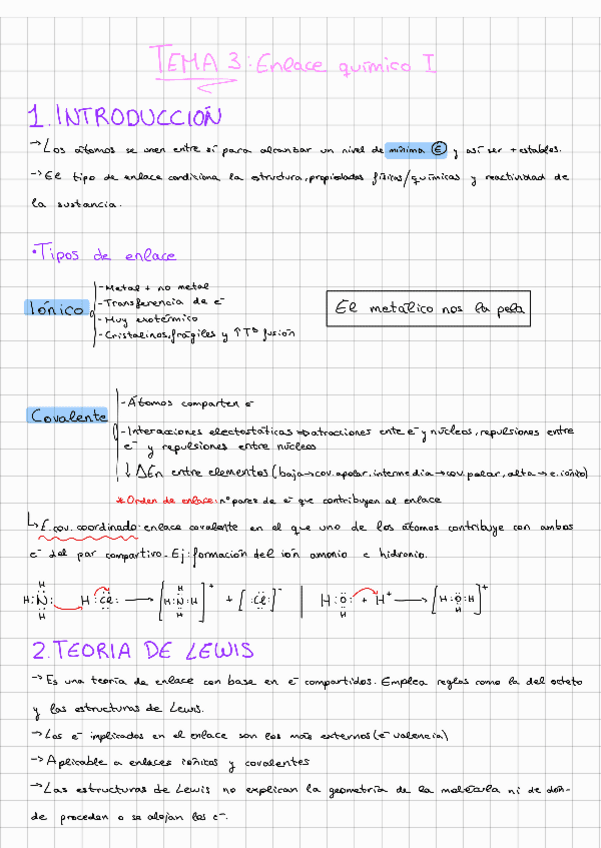 TEMA 3: Enlace químico I
1. INTRODUCCIÓN
-> Los átomos se unen entre sí para alcanzar un nivel de mínima Ⓔ y así ser + estables.
-> El tipo de enlace condiciona la estructura, propiedades físicas/químicas y reactividad de
la sustancia.
• Tipos de enlace
Iónico
- Metal + no metal
- Transferencia de e⁻
- Muy exotérmico
- Cristalinos, frágiles y ↑Tª fusión
El metálico nos la pela
Covalente
- Átomos comparten e⁻
- Interacciones electostáticas -> atracciones ente e⁻ y núcleos, repulsiones entre
e⁻ y repulsiones entre núcleos
↓ ΔEn entre elementos (baja -> cov. apolar, intermedia -> cov. polar, alta -> e. iónico)
* Orden de enlace: nº pares de e⁻ que contribuyen al enlace
↳ E. cov. coordinado: enlace covalente en el que uno de los átomos contribuye con ambos
e⁻ del par compartivo. Ej: formación del ión amonio e hidronio.
H:N: H:Cl: -> [H:N:H]⁺ + [:Cl:]⁻ | H:O: + H⁺ -> [H:O:H]⁺
H H H H H H
2. TEORIA DE LEWIS
-> Es una teoría de enlace con base en e⁻ compartidos. Emplea reglas como la del octeto
y las estructuras de Lewis.
-> Los e⁻ implicados en el enlace son los más externos (e⁻ valencia)
-> Aplicable a enlaces iónicos y covalentes
-> Las estructuras de Lewis no explican la geometría de la molécula ni de dón-
de proceden o se alojan los e⁻.